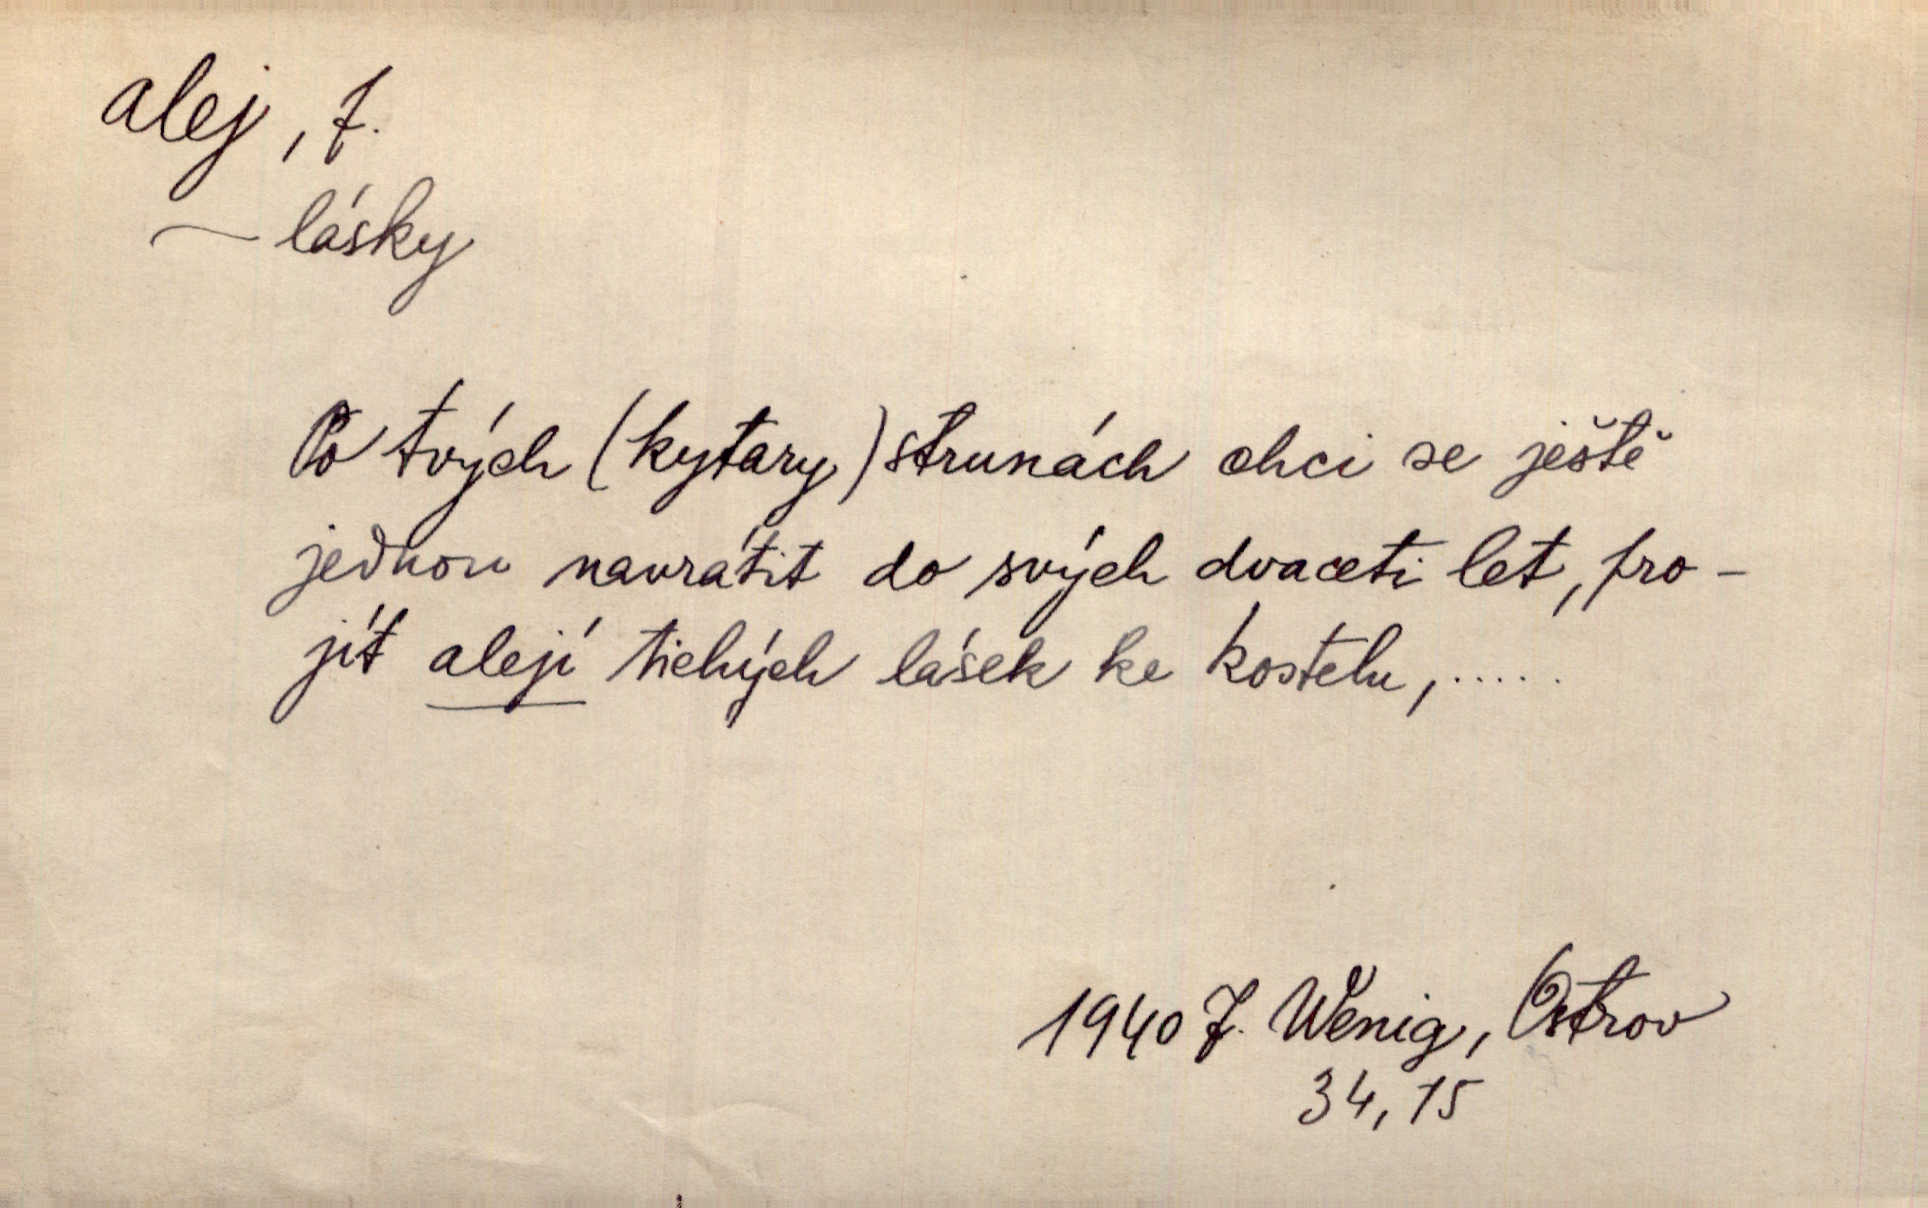 alej, f.
— lásky
Po tvých (kytary) strunách chci se ještě
jednou navrátit do svých dvaceti let, pro-
jít alejí tichých lásek ke kostelu,.....
1940 J. Wenig, Ostrov
34, 15